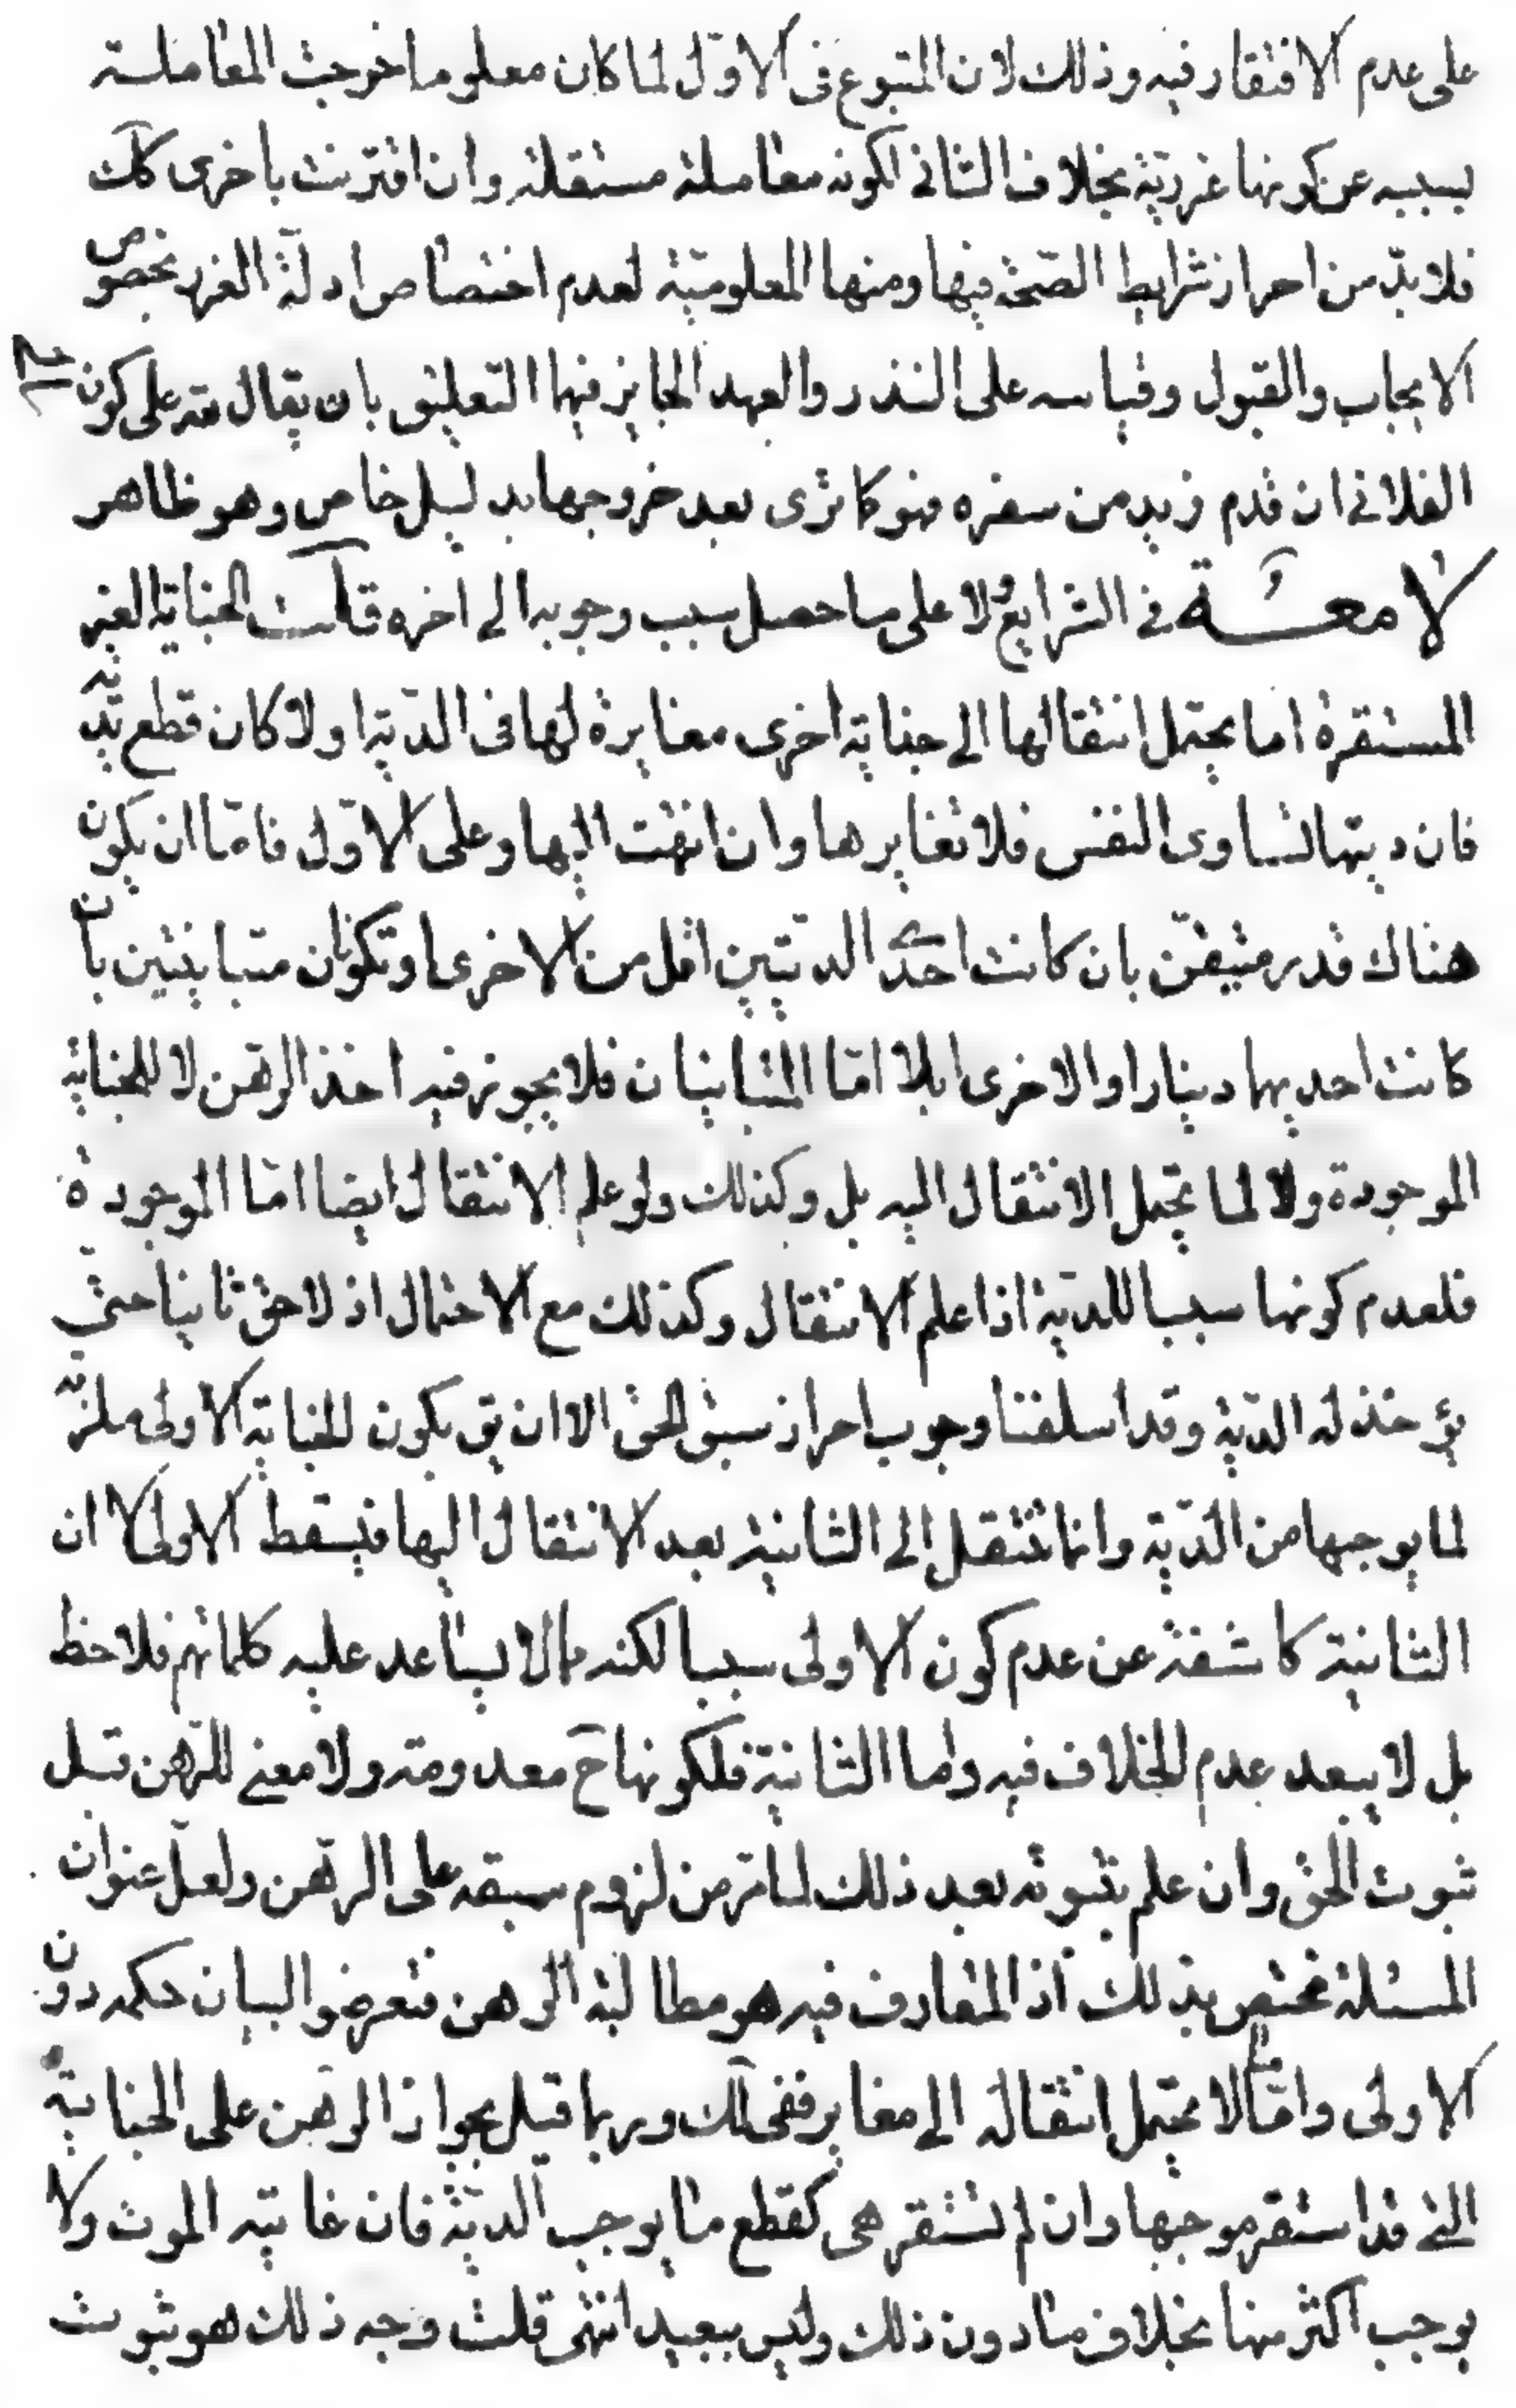 على عدم الافتقار فيه وذلك لان المتبوع فى الاوّل لما كان معلوما خرجت المعاملة
بسببه عن كونها غرريّة بخلاف الثانى لكونه معاملة مستقلة وان اقترنت باخرى كك
فلا بدّ من احراز شرايط الصّحة فيها ومنها المعلوميّة لعدم اختصاص ادلّة الغرر بخصوص
الايجاب والقبول وقياسه على النذر والعهد الجايز فيهما التعليق بان يقال لله على كون
الفلانى ان قدم زيد من سفره فهو كما ترى بعد خروجهما بدليل خاص وهو ظاهر
لامعة فى الشرايع ولا على ما حصل سبب وجوبه الى اخره قلت الجناية الغير
المستقرة اما يحتمل انتقالها الى جناية اخرى مغايرة لها فى الدّية او لا كان قطع يديه
فان ديتها تساوى النفس فلا تغايرها وان انتهت اليها وعلى الاوّل فامّا ان يكون
هناك قدر متيقّن بان كانت احدى الديتين اقل من الاخرى او تكونان متباينتين بان
كانت احديهما دينارا والاخرى ابلا امّا المتباينان فلا يجوز فيه اخذ الرّهن لا للجناية
الموجودة ولا لما يحتمل الانتقال اليه بل وكذلك ولو علم الانتقال ايضا امّا الموجودة
فلعدم كونها سببا للدّية اذا علم الانتقال وكذلك مع الاحتمال اذ لا حق ثابتا حتّى
يؤخذ له الدّية وقد اسلفنا وجوب احراز سبق الحق الا ان يق بكون الجناية الاولى ملزمة
لما يوجبها من الدّية وانما تنتقل الى الثانية بعد الانتقال اليها فيسقط الاولى لا ان
الثانية كاشفة عن عدم كون الاولى سببا لكنه مما لا يساعد عليه كلماتهم فلاحظ
بل لا يبعد عدم الخلاف فيه واما الثانية فلكونها ح معدومة ولا معنى للرّهن قبل
ثبوت الحق وان علم بثبوته بعد ذلك لما مرّ من لزوم سبقه على الرّهن ولعلّ عنوان
المسئلة مختص بذلك اذ المتعارف فيه هو مطالبة الرهن فتعرضوا لبيان حكمه دون
الاولى وامّا ما لا يحتمل انتقاله الى مغاير ففى لك وربما قيل بجواز الرهن على الجناية
التى قد استقر موجبها وان لم تستقر هى كقطع ما يوجب الدّية فان غايته الموت ولا
يوجب اكثر منها بخلاف ما دون ذلك وليس ببعيد انتهى قلت وجه ذلك هو ثبوت